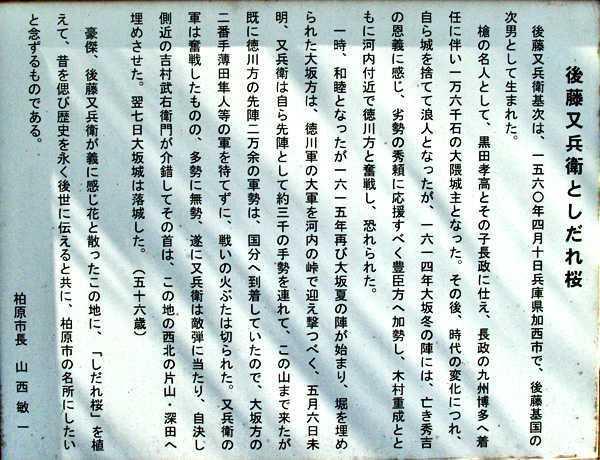 後藤又兵衛としだれ桜
後藤又兵衛基次は、一五六〇年四月十日兵庫県加西市で、後藤基国の
次男として生まれた。
槍の名人として、黒田孝高とその子長政に仕え、長政の九州博多へ着
任に伴い一万六千石の大隈城主となった。その後、時代の変化につれ、
自ら城を捨てて浪人となったが、一六一四年大坂冬の陣には、亡き秀吉
の恩義に感じ、劣勢の秀頼に応援すべく豊臣方へ加勢し、木村重成とと
もに河内付近で徳川方と奮戦し、恐れられた。
一時、和睦となったが一六一五年再び大坂夏の陣が始まり、堀を埋め
られた大坂方は、徳川軍の大軍を河内の峠で迎え撃つべく、五月六日未
明、又兵衛は自ら先陣として約三千の手勢を連れて、この山まで来たが
既に徳川方の先陣二万余の軍勢は、国分へ到着していたので、大坂方の
二番手薄田隼人等の軍を待てずに、戦いの火ぶたは切られた。又兵衛の
軍は奮戦したものの、多勢に無勢、遂に又兵衛は敵弾に当たり、自決し
側近の吉村武右衛門が介錯してその首は、この地の西北の片山・深田へ
埋めさせた。翌七日大坂城は落城した。（五十六歳）
豪傑、後藤又兵衛が義に感じ花と散ったこの地に、「しだれ桜」を植
えて、昔を偲び歴史を永く後世に伝えると共に、柏原市の名所にしたい
と念ずるものである。
柏原市長　山西敏一